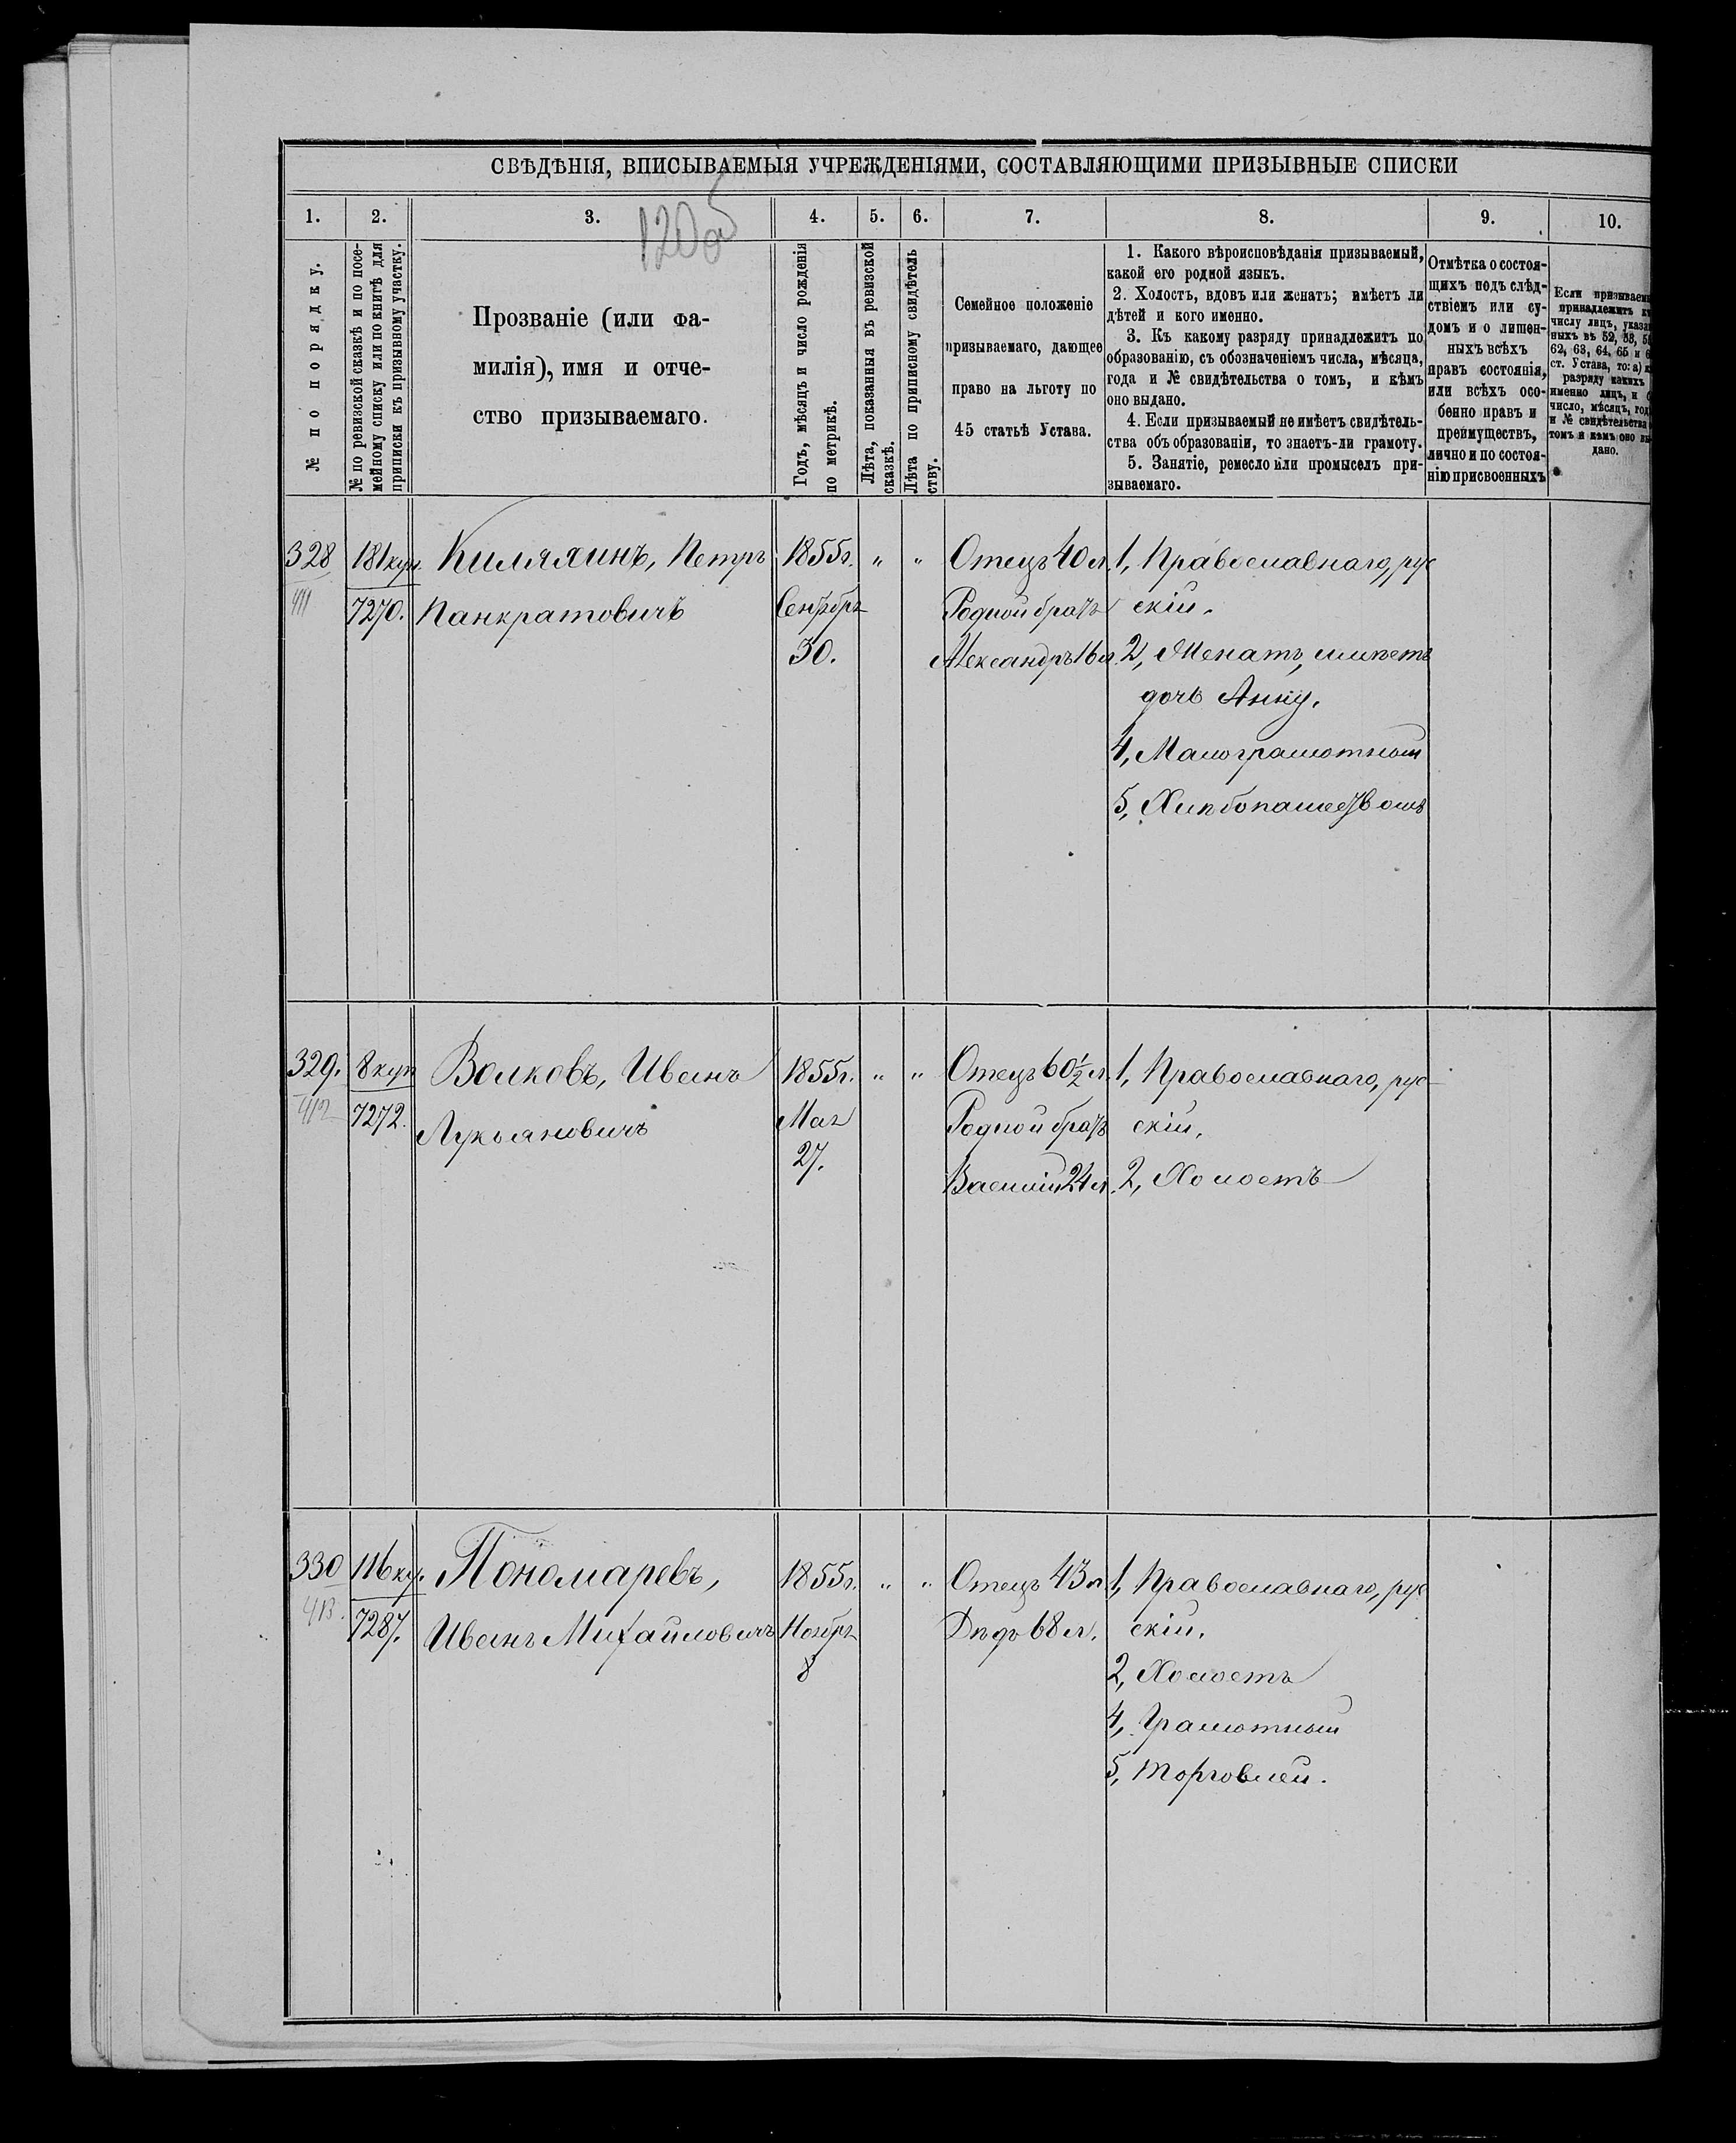 СВѢДѢНІЯ, ВПИСЫВАЕМЫЯ УЧРЕЖДЕНІЯМИ, СОСТАВЛЯЮЩИМИ ПРИЗЫВНЫЕ СПИСКИ
1. 2. 3. 4. 5. 6. 7. 8. 9. 10.
120об
№ по порядку.
№ по ревизской сказкѣ и по посе-
мейному списку или по книгѣ для
приписки къ призывному участку.
Прозваніе (или фа-
милія), имя и отче-
ство призываемаго.
Годъ, мѣсяцъ и число рожденія
по метрикѣ.
Лѣта, показанныя въ ревизской
сказкѣ.
Лѣта по приписному свидѣтель
ству.
Семейное положеніе
призываемаго, дающее
право на льготу по
45 статьѣ Устава.
1. Какого вѣроисповѣданія призываемый,
какой его родной языкъ.
2. Холостъ, вдовъ или женатъ; имѣетъ ли
дѣтей и кого именно.
3. Къ какому разряду принадлежитъ по
образованію, съ обозначеніемъ числа, мѣсяца,
года и № свидѣтельства о томъ, и кѣмъ
оно выдано.
4. Если призываемый не имѣетъ свидѣтель-
ства объ образованіи, то знаетъ-ли грамоту.
5. Занятіе, ремесло или промыселъ при-
зываемаго.
Отмѣтка о состоя-
щихъ подъ слѣд-
ствіемъ или су-
домъ и о лишен-
ныхъ всѣхъ
правъ состоянія,
или всѣхъ осо-
бенно правъ и
преимуществъ,
лично и по состоя-
нію присвоенныхъ
Если призываем
принадлежитъ къ
числу лицъ, указа
ныхъ въ 52, 53,
62, 63, 64, 65 и
ст. Устава, то: а)
разряду какихъ
именно лицъ, и
число, мѣсяцъ, год
и № свидѣтельства
томъ и кѣмъ оно вы-
дано.
328
411
181 куп.
7270.
Киляхинъ, Петръ
Панкратовичъ
1855г.
Сентябр
30.
" "
Отецъ 40 л.
Родной братъ
Александръ 16 л.
1, Православнаго, рус
скій.
2, Женатъ, имѣетъ
дочь Анну.
4, Малограмотный
5, Хлѣбопашествомъ
329.
412
8 куп
7272.
Волковъ, Иванъ
Лукьяновичъ
1855г.
Мая
27.
" "
Отецъ 60½ л.
Родной братъ
Василій 24 л.
1, Православнаго, рус-
скій.
2, Холостъ
330
413.
116 ку.
7287.
Пономаревъ,
Иванъ Михайловичъ
1855г.
Ноябрь
8
" "
Отецъ 43 л
Дѣдъ 68 л.
1, Православнаго, рус
скій.
2, Холостъ
4, Грамотный
5, Торговлей.